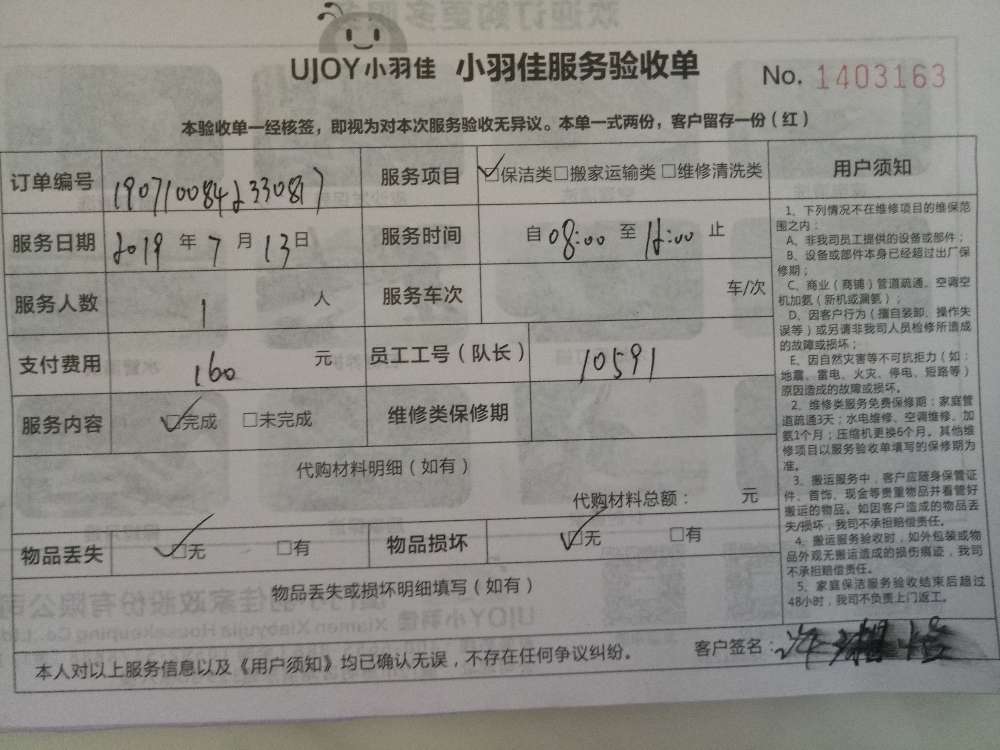 UJOY小羽佳 小羽佳服务验收单 No. 1403163
本验收单一经核签，即视为对本次服务验收无异议。本单一式两份，客户留存一份（红）
订单编号 服务项目 ☑保洁类□搬家运输类 □维修清洗类
服务日期 2019 年 7 月 13 日 服务时间 自 08:00 至 12:00 止
服务人数 1 人 服务车次 车/次
支付费用 160 元 员工工号（队长） 10591
服务内容 ☑完成 □未完成 维修类保修期
代购材料明细（如有）
代购材料总额： 元
物品丢失 ☑无 □有 物品损坏 ☑无 □有
物品丢失或损坏明细填写（如有）
本人对以上服务信息以及《用户须知》均已确认无误，不存在任何争议纠纷。 客户签名：
用户须知
1、下列情况不在维修项目的维保范
围之内：
A、非我司员工提供的设备或部件；
B、设备或部件本身已经超过出厂保
修期；
C、商业（商铺）管道疏通、空调空
机加氨（新机或漏氨）；
D、因客户行为（擅自装卸、操作失
误等）或另请非我司人员检修所造成
的故障或损坏；
E、因自然灾害等不可抗拒力（如：
地震、雷电、火灾、停电、短路等）
原因造成的故障或损坏。
2、维修类服务免费保修期：家庭管
道疏通3天；水电维修、空调维修、加
氨1个月；压缩机更换6个月。其他维
修项目以服务验收单填写的保修期为
准。
3、搬运服务中，客户应随身保管证
件、首饰、现金等贵重物品并看管好
搬运的物品。如因客户造成的物品丢
失/损坏，我司不承担赔偿责任。
4、搬运服务验收时，如外包装或物
品外观无搬运造成的损伤痕迹，我司
不承担赔偿责任。
5、家庭保洁服务验收结束后超过
48小时，我司不负责上门返工。